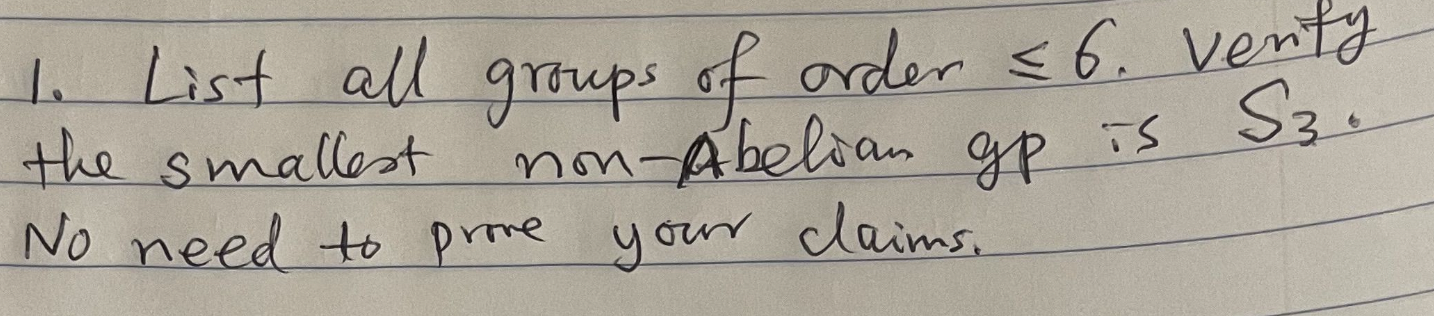 1. List all groups of order ≤ 6. Verify
the smallest non-Abelian gp is S₃.
No need to prove your claims.